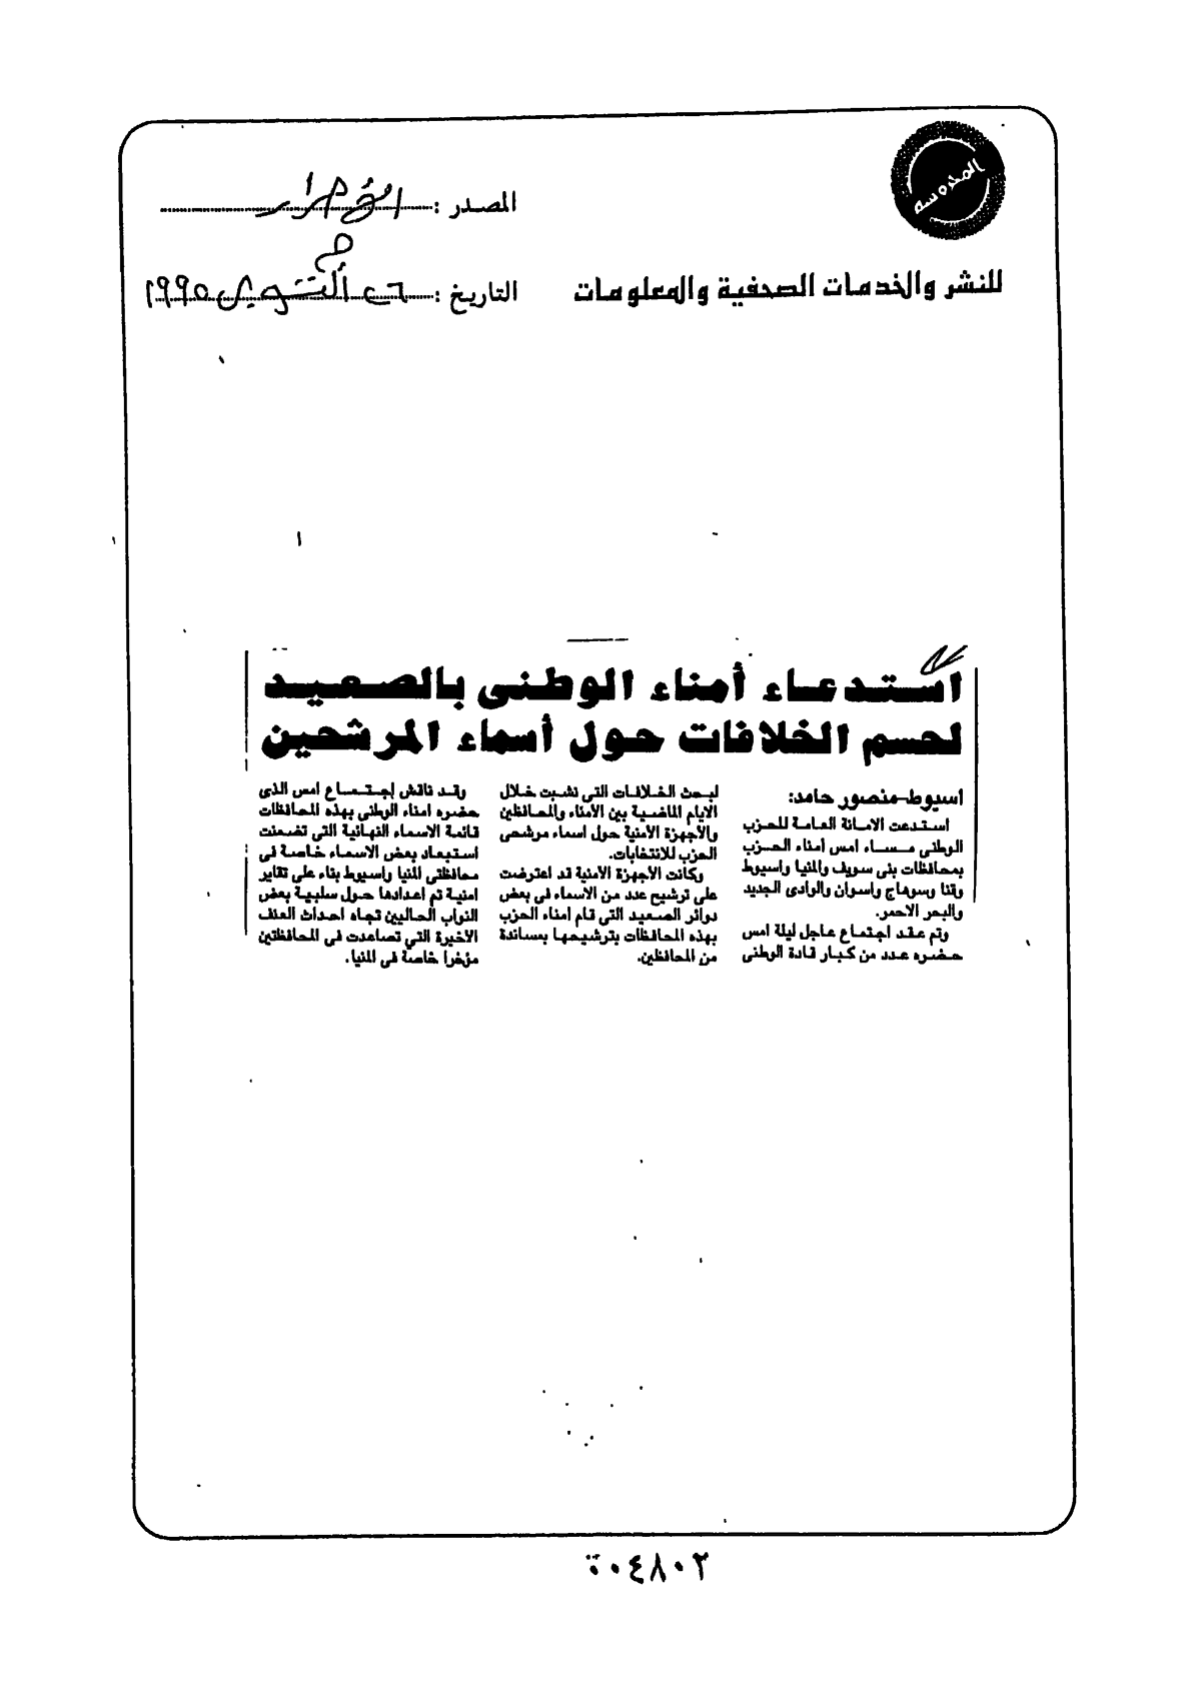 المحروسة
المصدر : الأحرار
للنشر والخدمات الصحفية والمعلومات
التاريخ : ٢٦ أكتوبر ١٩٩٥
استدعاء أمناء الوطنى بالصعيد
لحسم الخلافات حول أسماء المرشحين
اسيوط-منصور حامد:
استدعت الامانة العامة للحزب
الوطنى مساء امس أمناء الحزب
بمحافظات بنى سويف والمنيا واسيوط
وقنا وسوهاج واسوان والوادى الجديد
والبحر الاحمر.
وتم عقد اجتماع عاجل ليلة امس
حضره عدد من كبار قادة الوطنى
لبحث الخلافات التى نشبت خلال
الايام الماضية بين الأمناء والمحافظين
والأجهزة الأمنية حول اسماء مرشحى
الحزب للانتخابات.
وكانت الأجهزة الأمنية قد اعترضت
على ترشيح عدد من الاسماء فى بعض
دوائر الصعيد التى قام امناء الحزب
بهذه المحافظات بترشيحها بمساندة
من المحافظين.
وقد ناقش إجتماع امس الذى
حضره امناء الوطنى بهذه المحافظات
قائمة الاسماء النهائية التى تضمنت
استبعاد بعض الاسماء خاصة فى
محافظتى المنيا واسيوط بناء على تقاير
امنية تم اعدادها حول سلبية بعض
النواب الحاليين تجاه احداث العنف
الاخيرة التي تصاعدت فى المحافظتين
مؤخرا خاصة فى المنيا.